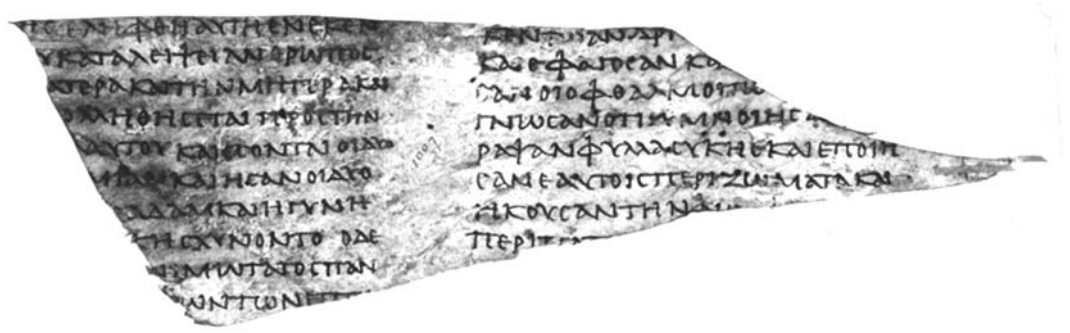 ΗϹΕΛΗΦΘΗΑΥΤΗΕΝΕΚΕΝ
ΥΚΑΤΑΛΕΙΨΕΙΑΝΘΡΩΠΟϹ
ΑΤΕΡΑΚΑΙΤΗΝΜΗΤΕΡΑΚΑΙ
ΟΛΛΗΘΗϹΕΤΑΙΠΡΟϹΤΗΝ
ΑΥΤΟΥΚΑΙΕϹΟΝΤΑΙΟΙΔΥΟ
ΜΙΑΝΚΑΙΗϹΑΝΟΙΔΥΟ
ΑΔΑΜΚΑΙΗΓΥΝΗ
ΚΗϹΧΥΝΟΝΤΟ ΟΔΕ
ΙΜΩΤΑΤΟϹΠΑΝ
ΩΝΤΩΝΕΠΙ
1007
ΚΕΝΤΩΑΝΔΡΙ
ΚΑΙΕΦΑΓΟϹΑΝΚΑ
ϹΑΝΟΙΟΦΘΑΛΜΟΙΤΩ
ΓΝΩϹΑΝΟΤΙΓΥΜΝΟΙΗϹΑ
ΡΑΨΑΝΦΥΛΛΑϹΥΚΗϹΚΑΙΕΠΟΙΗ
ϹΑΝΕΑΥΤΟΙϹΠΕΡΙΖΩΜΑΤΑΚΑΙ
ΗΚΟΥϹΑΝΤΗΝ
ΠΕΡΙΠΑΤ